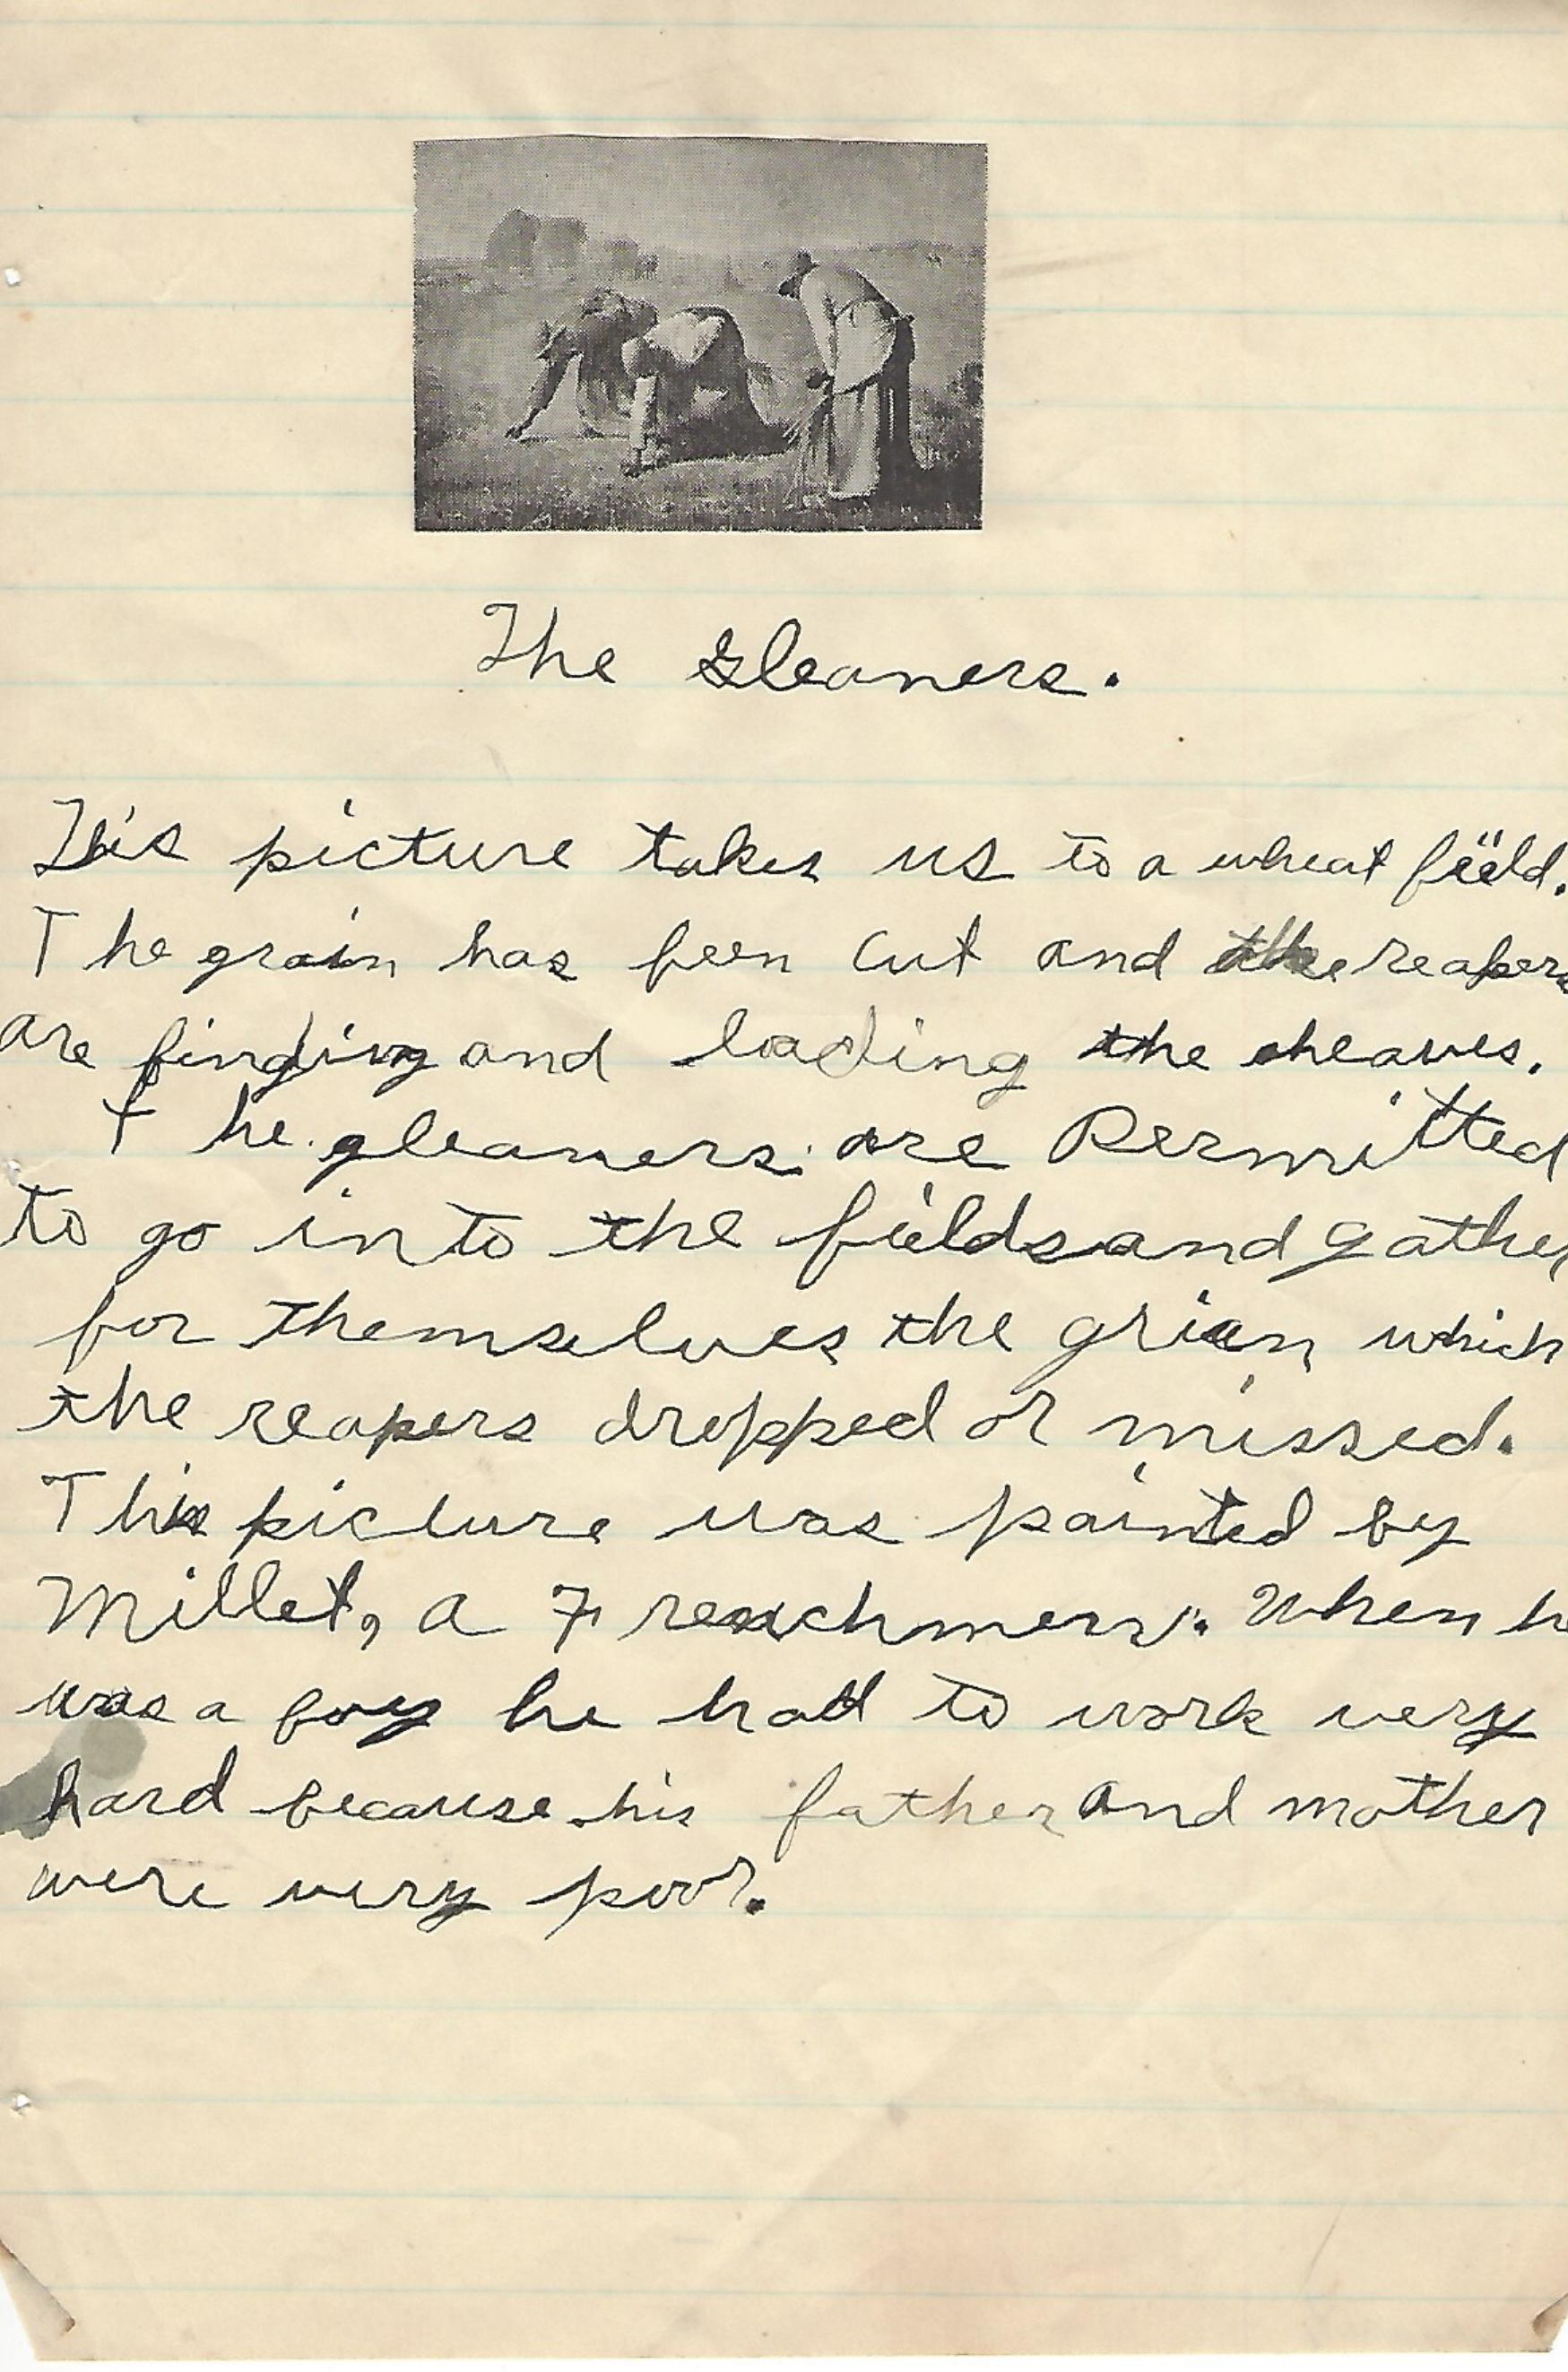 The Gleaners.
This picture takes us to a wheat field.
The grain has been cut and the reapers
are binding and loading the sheaves.
The gleaners are Permitted
to go into the fields and gather
for themselves the grian which
the reapers dropped or missed.
This picture was painted by
Millet, a Frenchmen. When he
was a boy he had to work very
hard because his father and mother
were very poor.